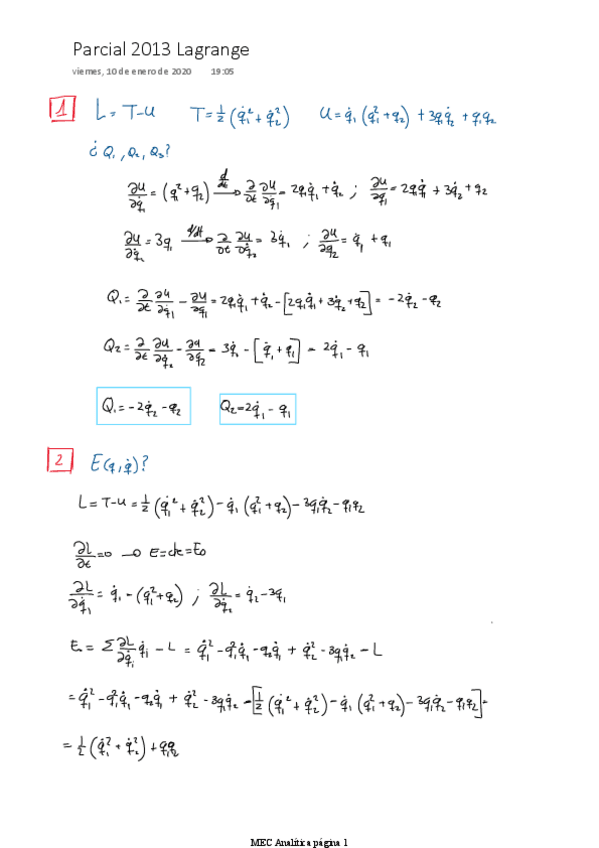 Parcial 2013 Lagrange
viernes, 10 de enero de 2020 19:05
1 L = T-U T = ½(q̇₁² + q̇₂²) U = q̇₁(q₁² + q₂) + 3q₁q̇₂ + q₁q₂
¿Q₁, Q₂, Q₃?
∂U/∂q̇₁ = (q₁² + q₂) —d/dt→ ∂/∂t ∂U/∂q̇₁ = 2q₁q̇₁ + q̇₂ ; ∂U/∂q₁ = 2q₁q̇₁ + 3q̇₂ + q₂
∂U/∂q̇₂ = 3q₁ —d/dt→ ∂/∂t ∂U/∂q̇₂ = 3q̇₁ ; ∂U/∂q₂ = q̇₁ + q₁
Q₁ = ∂/∂t ∂U/∂q̇₁ - ∂U/∂q₁ = 2q₁q̇₁ + q̇₂ - [2q₁q̇₁ + 3q̇₂ + q₂] = -2q̇₂ - q₂
Q₂ = ∂/∂t ∂U/∂q̇₂ - ∂U/∂q₂ = 3q̇₁ - [q̇₁ + q₁] = 2q̇₁ - q₁
Q₁ = -2q̇₂ - q₂ Q₂ = 2q̇₁ - q₁
2 E(q, q̇)?
L = T-U = ½(q̇₁² + q̇₂²) - q̇₁(q₁² + q₂) - 3q₁q̇₂ - q₁q₂
∂L/∂t = 0 → E = cte = E₀
∂L/∂q̇₁ = q̇₁ - (q₁² + q₂) ; ∂L/∂q̇₂ = q̇₂ - 3q₁
E₀ = Σ ∂L/∂q̇ᵢ q̇ᵢ - L = q̇₁² - q₁²q̇₁ - q₂q̇₁ + q̇₂² - 3q₁q̇₂ - L
= q̇₁² - q₁²q̇₁ - q₂q̇₁ + q̇₂² - 3q₁q̇₂ - [½(q̇₁² + q̇₂²) - q̇₁(q₁² + q₂) - 3q₁q̇₂ - q₁q₂] =
= ½(q̇₁² + q̇₂²) + q₁q₂
MEC Analítica página 1